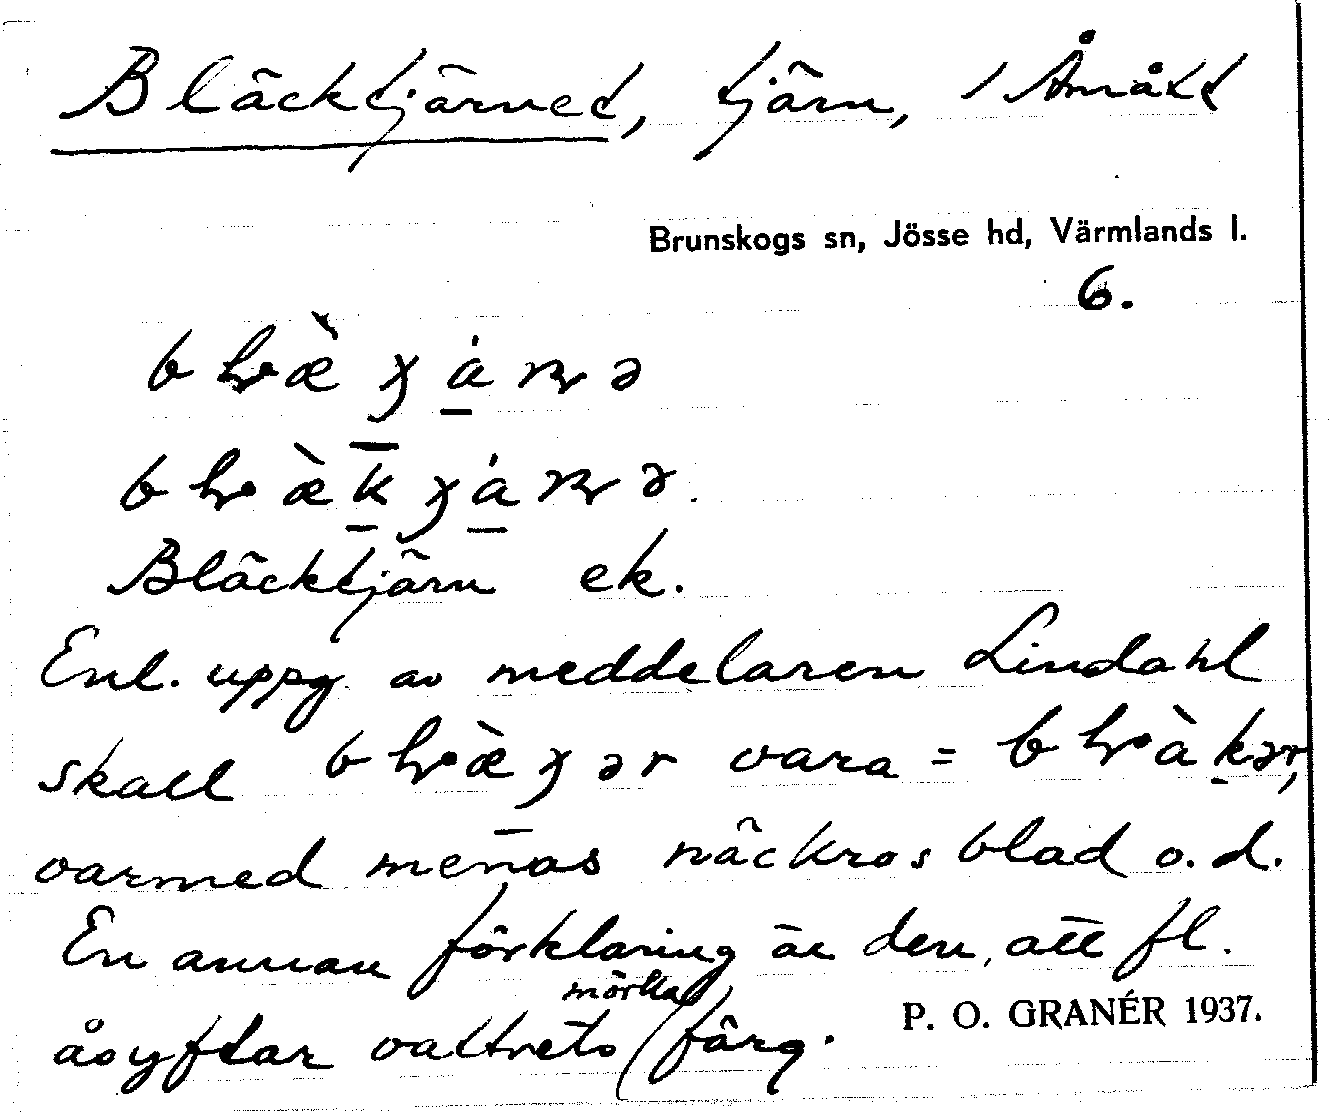 Bläcktjärnet, tjärn, i Åmått
Brunskogs sn, Jösse hd, Värmlands l.
6.
Bläcktjärn ek.
Enl. uppg. av meddelaren Lindahl
skall vara =
varmed menas näckrosblad o.d.
En annan förklaring är den, att fl.
åsyftar vattnets mörka färg.
P. O. GRANÉR 1937.